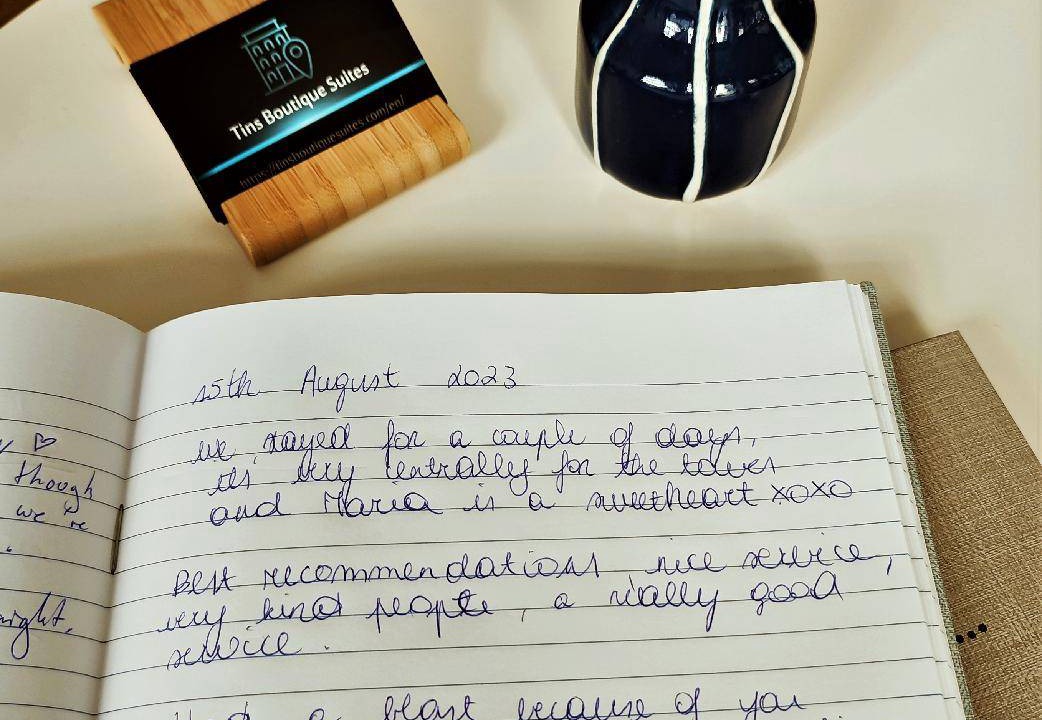 Tins Boutique Suites
https://tinsboutiquesuites.com/en/
though
we're
night.
15th August 2023
we stayed for a couple of days,
its very centrally for the tower
and Maria is a sweetheart xoxo
Best recommendations nice service,
very kind people, a really good
service.
a blast because of you